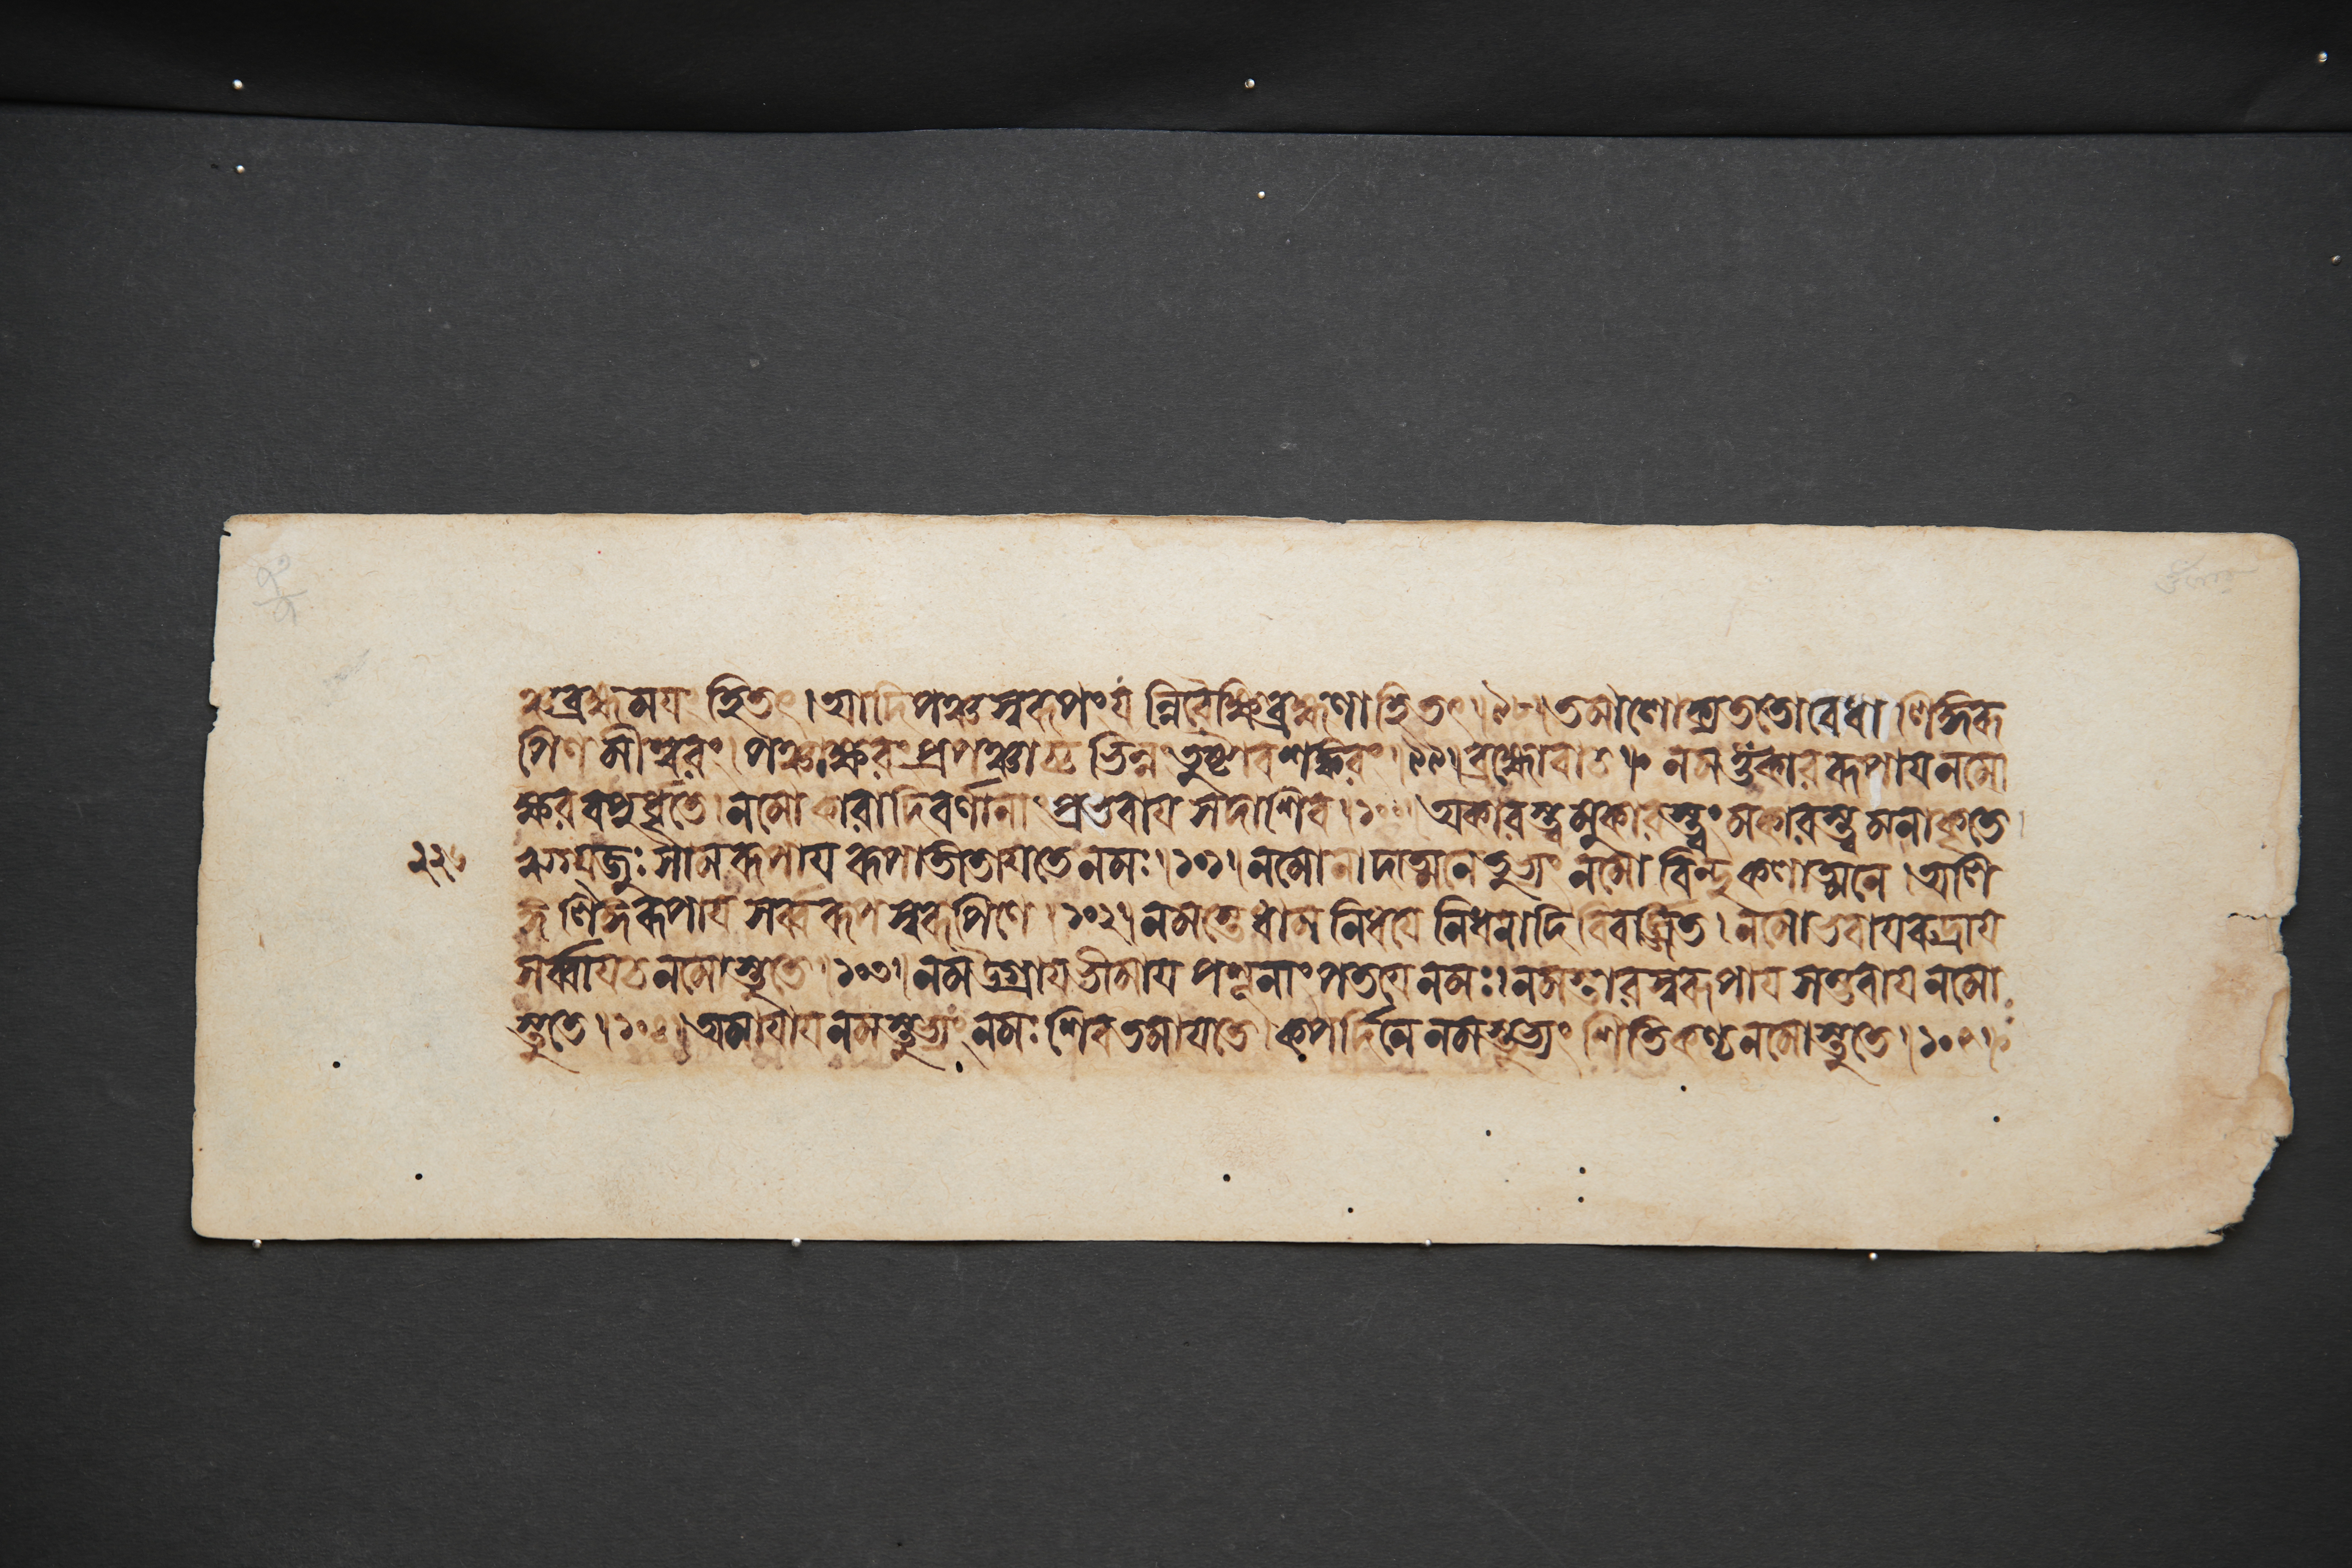 রংব্রহ্মময়ং হি তৎ। আদিপঞ্চস্বরূপং যন্নিরৈক্ষি ব্রহ্মণা হি তৎ।৯৮। ততো বেধা লিঙ্গরূ
পিণমীশ্বরং। পঞ্চাক্ষরং প্রপঞ্চাচ্চ ভিন্নং তুষ্টাব শঙ্করং।৯৯। ব্রহ্মোবাচ॥ নমস্তুঁকাররূপায় নমো
ক্ষরবপুর্ধৃতে। নমোকারাদিবর্ণানাং প্রভবায় সদাশিব।১০০। অকারস্ত্বমুকারস্ত্বং মকারস্ত্বমনাকৃতে।
২২৬ ঋগ্যজুঃসামরূপায় রূপাতীতায় তে নমঃ।১০১। নমো নাদাত্মনে তুভ্যং নমো বিন্দুকলাত্মনে। অলি
ঙ্গলিঙ্গরূপায় সর্ব্বরূপস্বরূপিণে।১০২। নমস্তে ধামনিধয়ে নিধনাদিবিবর্জ্জিত। নমো ভবায় রুদ্রায়
সর্ব্বায় চ নমোস্তুতে।১০৩। নম উগ্রায় ভীমায় পশূনাং পতয়ে নমঃ। নমস্তারস্বরূপায় সম্ভবায় নমো
স্তুতে।১০৪। অমায়ায় নমস্তুভ্যং নমঃ শিবতমায় তে। কপর্দিনে নমস্তুভ্যং শিতিকণ্ঠ নমোস্তুতে।১০৫।